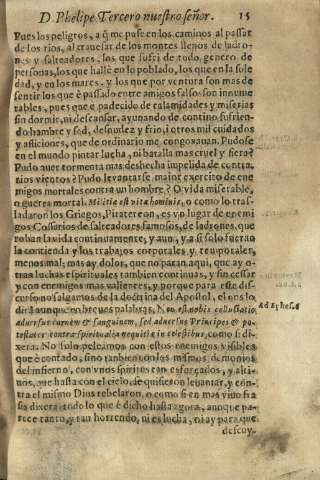 D. Phelipe Tercero nuestro señor. 15
Pues los peligros, a q̃ me puse en los caminos al passar
de los rios, al trauesar de los montes llenos de ladro-
nes y salteadores, los que sufri de todo, genero de
personas, los que hallè en lo poblado, los que en la sole
dad, y en los mares, y los que por ventura son mas de
sentir los que è passado entre amigos falsos son innume
rables, pues que è padecido de calamidades y miserias
sin dormir, ni descansar, ayunando de contino sufrien-
do hambre y sed, desnudez y frio, i otros mil cuidados
y aflicciones, que de ordinario me congoxauan. Pudose
en el mundo pintar lucha, ni batalla mas cruel y fiera?
Pudo auer tormenta mas deshecha impelida de contra
rios vientos? Pudo leuantarse maior exercito de ene
migos mortales contra un hombre? O vida miserable,
o guerra mortal. Militia est vita hominis, o como lo tras-
ladaron los Griegos, Piratereon, es vn lugar de enemi
gos Cossarios de salteadores famosos, de ladrones, que
roban la vida continuamente, y aun, y a si solo fueran
la contienda y los trabajos corporales y temporales,
menos mal; mas ay dolor, que no paran aqui, que ay o-
tras luchas espirituales tambien continuas, y sin cessar
y con enemigos mas valientes, y porque para este dis-
curso nos salgamos de la doctrina del Apostol, el nos lo
dirà aunque en breues palabras, Non est nobis colluctatio
aduersus carnem & sanguinem, sed aduersus Principes & po-
testates contra spiritualia nequitiæ in cœlestibus, como si di-
xera. No solo peleamos con estos enemigos visibles
que è contado, sino tambien con los mismos demonios
del infierno, con vnos spiritus tan esforçados, y alti-
uos, que hasta con el cielo se quisieron leuantar, y con-
tra el mismo Dios rebelaron, o como si en mas viuo fra
sis dixera: todo lo que è dicho hasta agora, aunque pa-
rece tanto, y tan horrendo, ni es lucha, ni ay para que
descuy-
Ad Ephes. 6